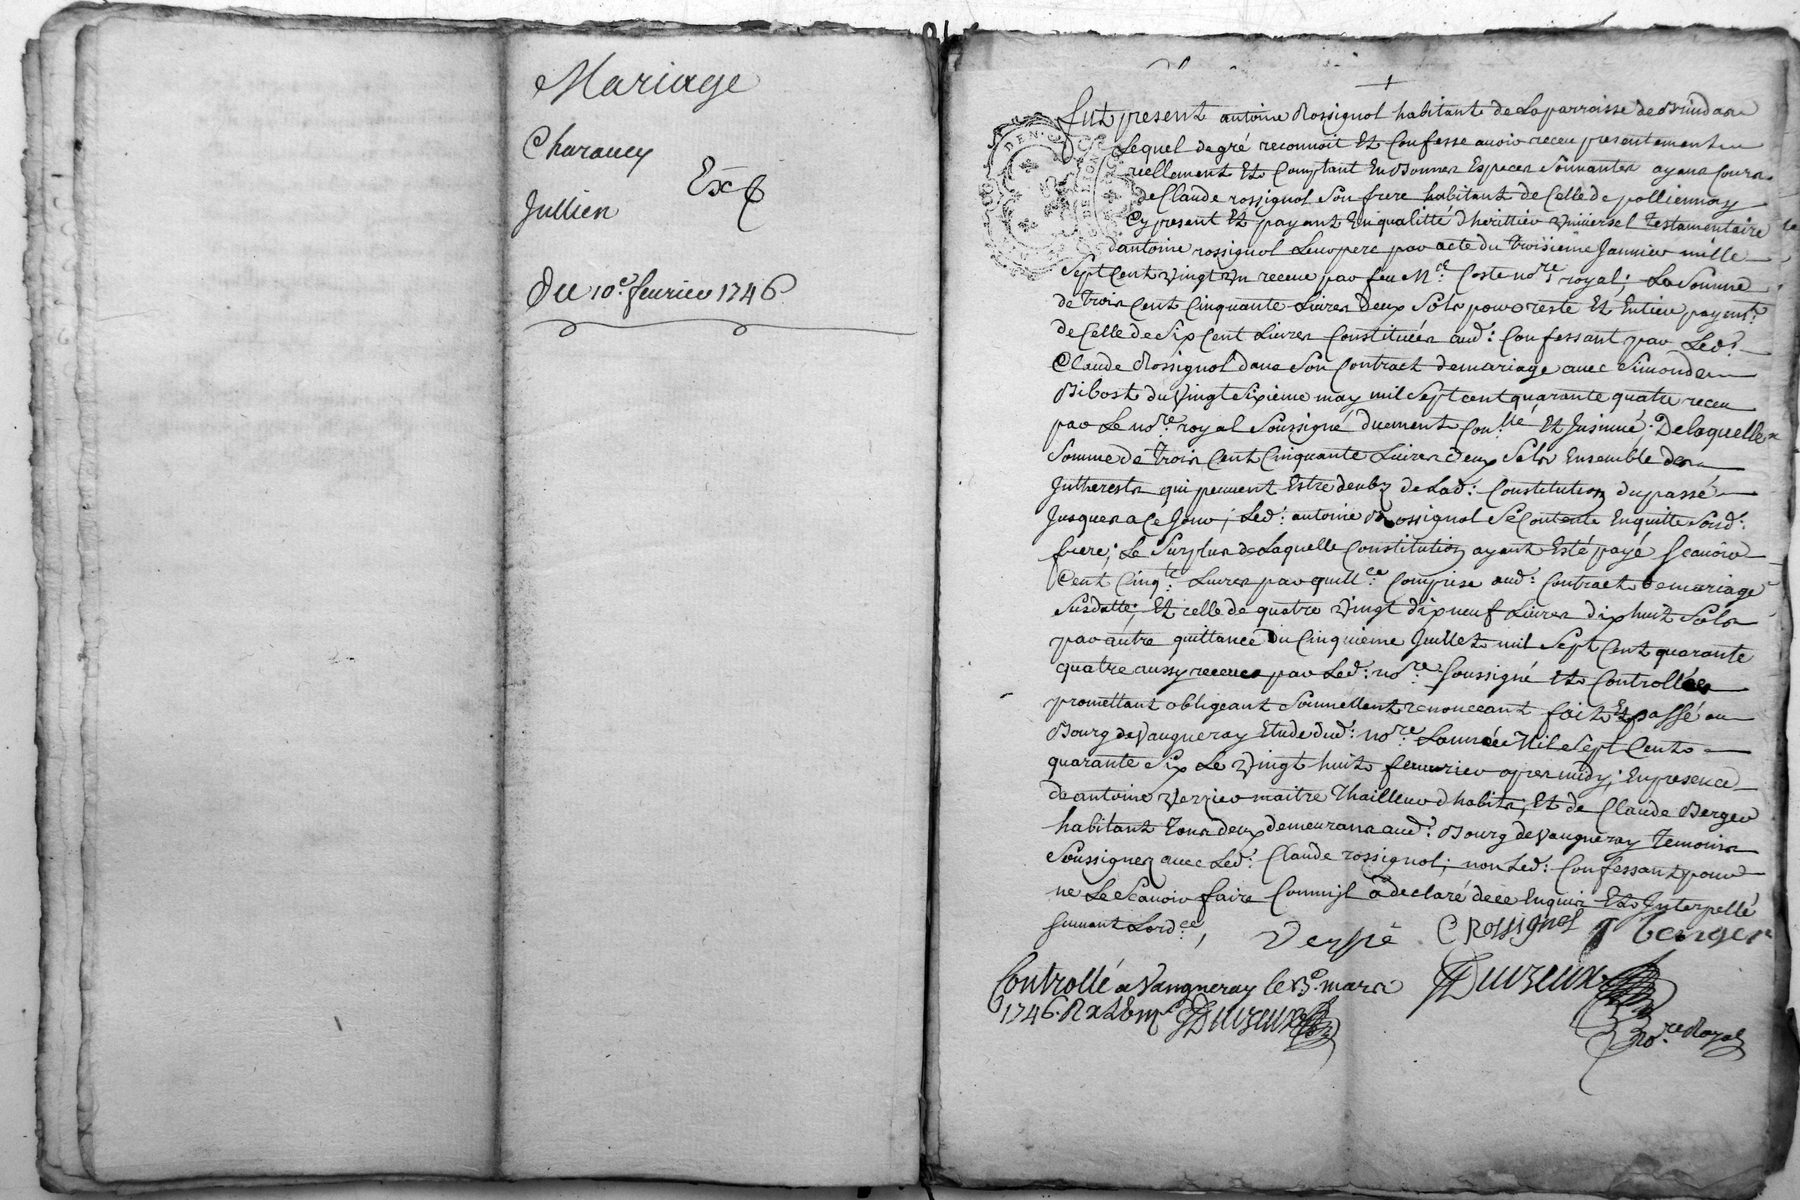 Mariage
Charancy
Exp
Jullien
Du 10e fevrier 1746
Fut present antoine Rossignol habitant de La parroisse de Brindas
Lequel de gré reconnoit Et Confesse avoir receu presentement
reellement Et Comptant En Bonnes Especes Sonnantes ayans Cours
de Claude rossignol Son frere habitant de Celle de pollionnay
Cy present Et payant En qualitté d'herittier Universel testamentaire
d'antoine rossignol Leur pere par acte du troisieme Janvier mille
Sept Cent vingt un receu par feu Me Coste nore royal; La Somme
de trois Cent Cinquante Livres Deux Sols pour reste Et Entier payemt
de Celle de Six Cent Livres Constituées aud: Confessant par Led:
Claude Rossignol dans Son Contract de mariage avec Simonde
Bibost du vingt Sixieme may mil Sept cent quarante quatre receu
par Le nore royal Soussigné duement Conllé Et Insinué; De laquelle
Somme de trois Cent Cinquante Livres deux Sols Ensemble des
Intherests qui peuvent Estre deubz de Lad: Constitution du passé
Jusques a Ce Jour; Led: antoine Rossignol Se Contente En quitte Sond:
frere; Le Surplus de Laquelle Constitution ayant Esté payé Scavoir
Cent Cinqte Livres par quittce Comprise aud: Contract de mariage
Susdatté; Et celle de quatre vingt dix neuf Livres dix huit Sols
par autre quittance du Cinquieme Juillet mil Sept Cent quarante
quatre aussy receues par Led: nore Soussigné Et Controllées
promettant obligeant Soumettant renonceant fait Et passé au
Bourg de Vaugneray Etude dud: nore L'année Mil Sept Cent
quarante Six Le vingt huit fevrier apres midy; En presence
de antoine Verrier maitre thailleur d'habits, Et de Claude Berger
habitant tous deux demeurans aud: Bourg de Vaugneray temoins
Soussignez avec Led: Claude rossignol; non Led: Confessant pour
ne Le Scavoir faire Comm'jl a declaré de ce Enquis Et Interpellé
suivant Lordce,
Verriė C Rossignol C berger
Controllé a Vaugneray le 13e mars
1746. R
Duvzeux
Duvzeux
nore Royal